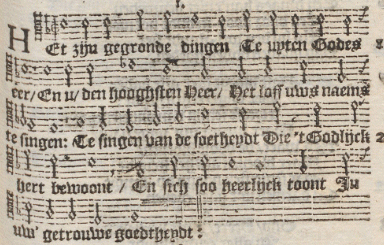 1.
HEt zijn gegronde dingen Te uyten Godes
eer/ En u/ den hooghsten Heer/ Het loff uws naems
te singen: Te singen van de soetheydt Die 't Godlijck
hert bewoont / En sich soo heerlijck toont In
uw' getrouwe goedtheydt: